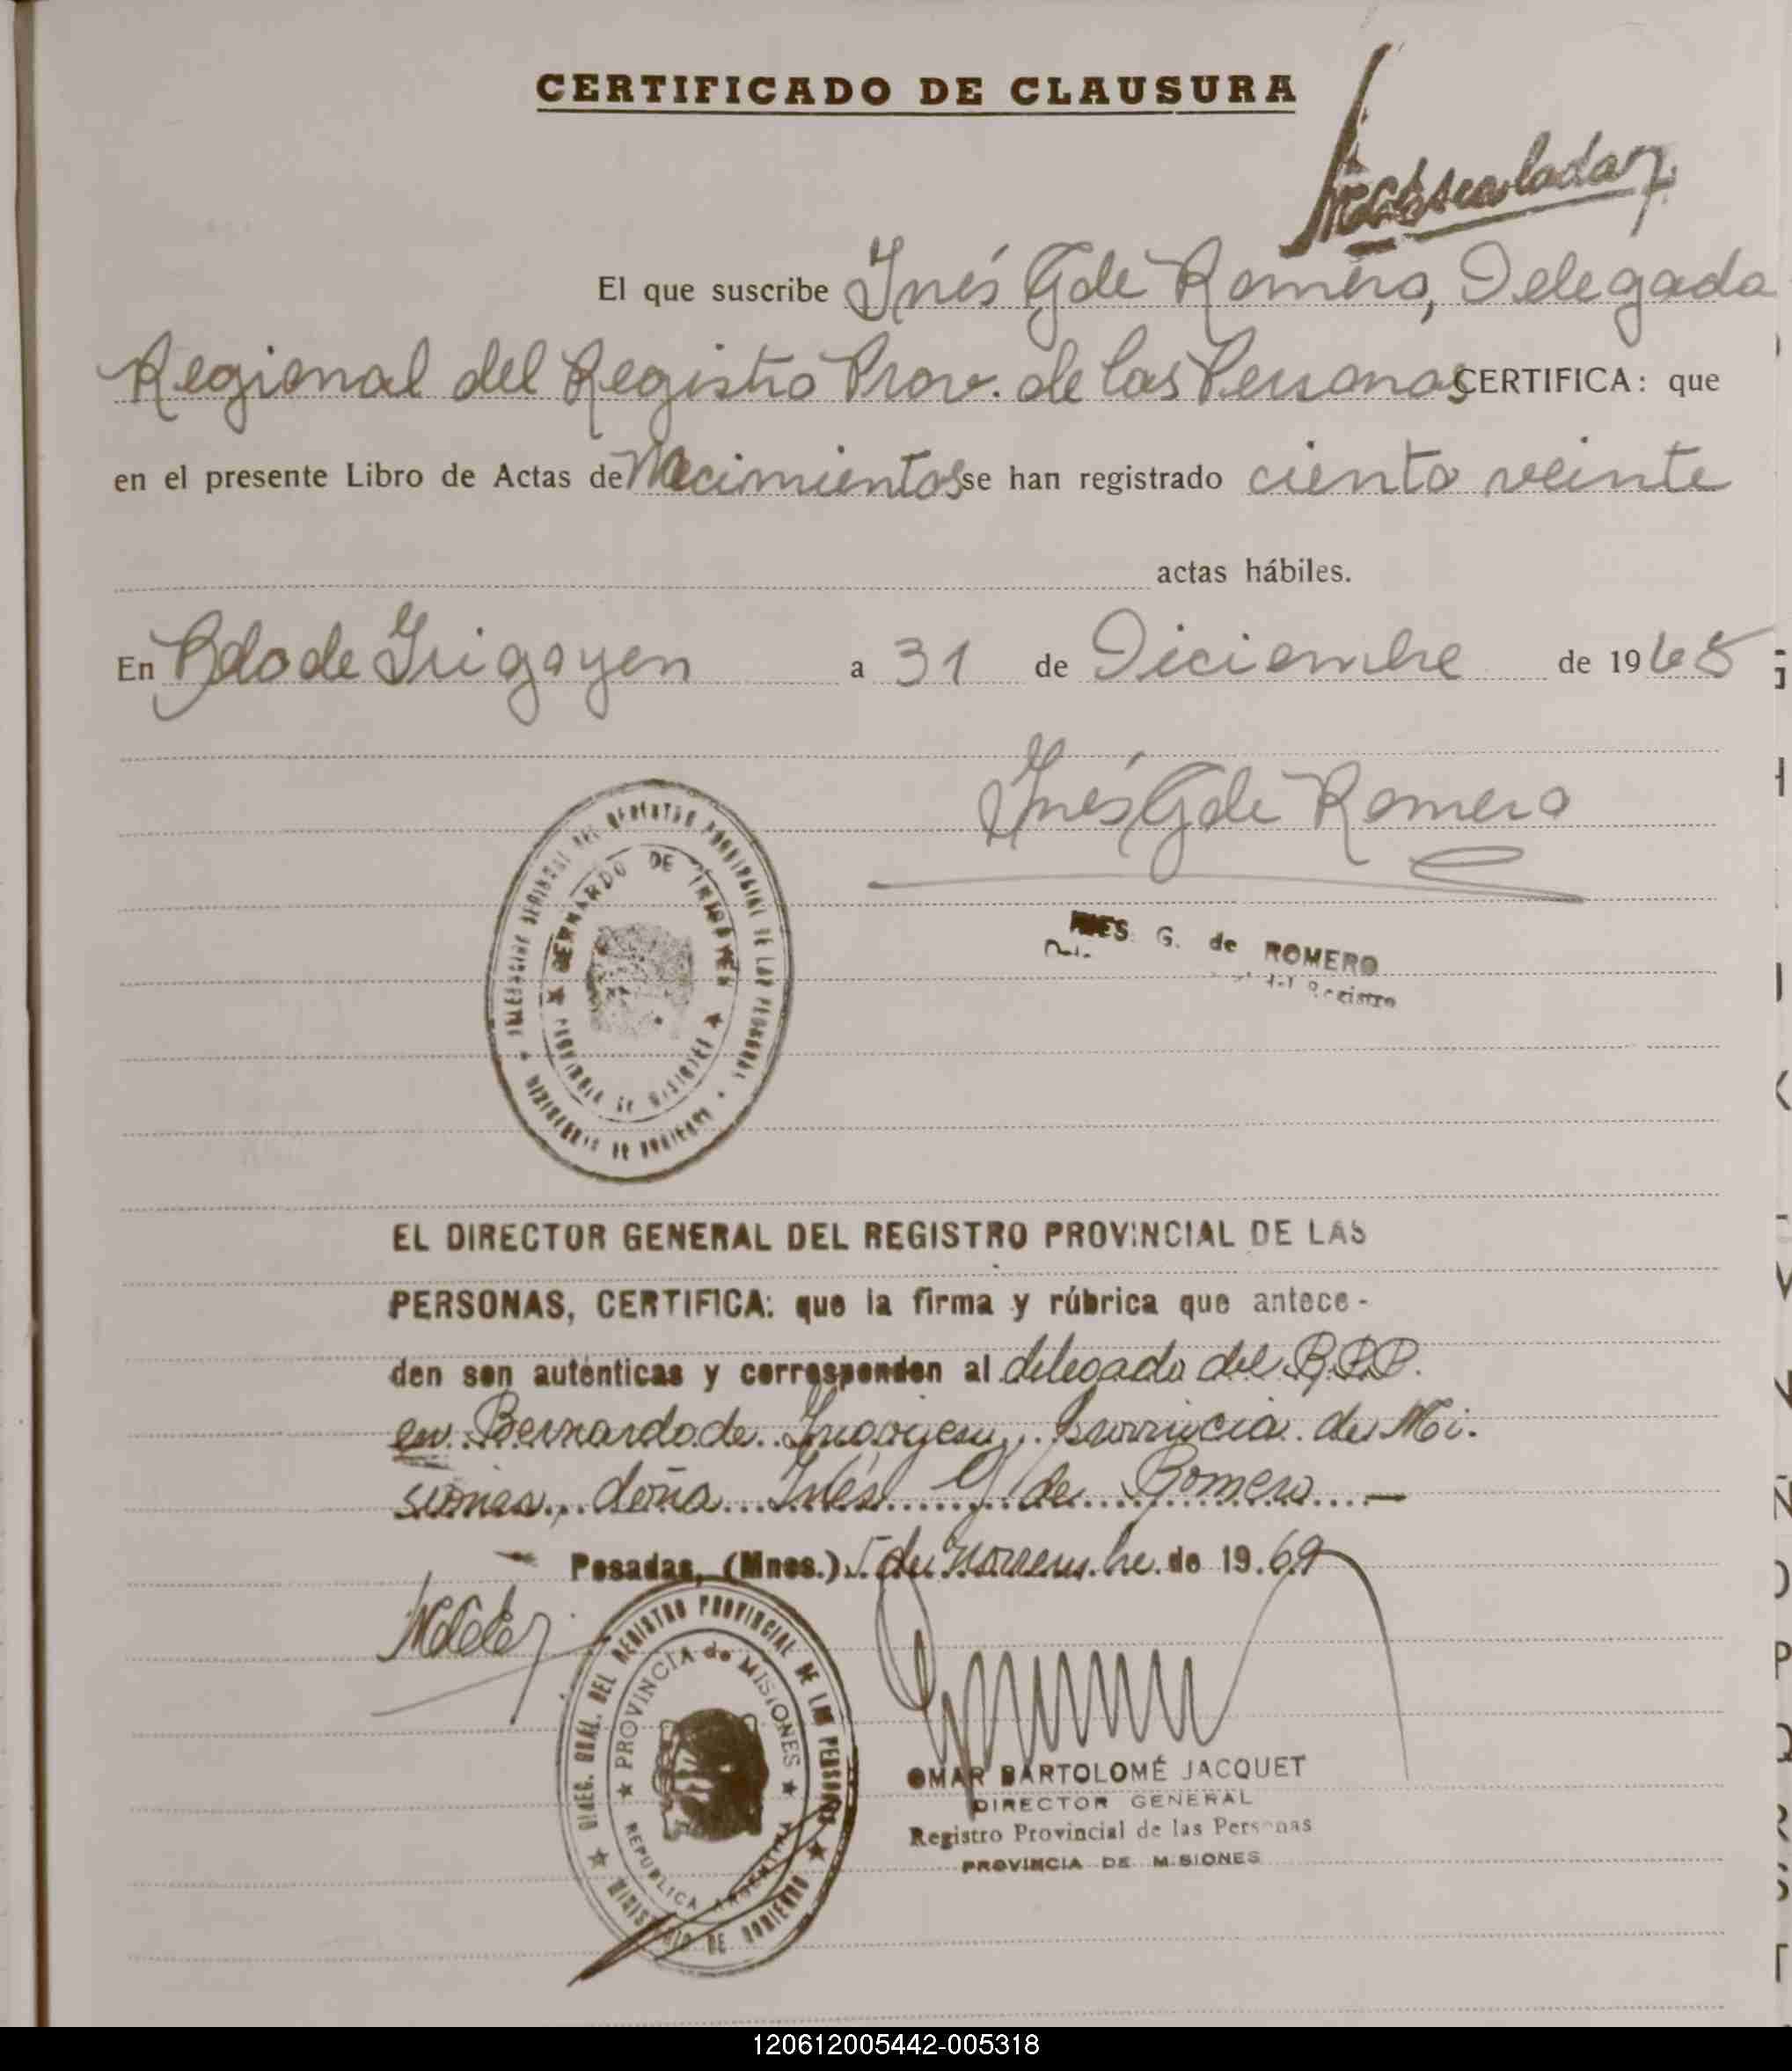 CERTIFICADO DE CLAUSURA
El que suscribe Inés G de Romero, Delegada
Regional del Registro Prov. de las Personas CERTIFICA: que
en el presente Libro de Actas de Nacimientos se han registrado ciento veinte
actas hábiles.
En Bdo de Irigoyen a 31 de Diciembre de 1968
Inés G de Romero
INES G. de ROMERO
del Registro
DELEGACION REGIONAL DEL REGISTRO PROVINCIAL DE LAS PERSONAS
BERNARDO DE IRIGOYEN
PROVINCIA DE MISIONES
MINISTERIO DE GOBIERNO
EL DIRECTOR GENERAL DEL REGISTRO PROVINCIAL DE LAS
PERSONAS, CERTIFICA: que la firma y rúbrica que antece-
den son auténticas y corresponden al delegada del R.P.P.
en Bernardo de Irigoyen, provincia de Mi-
siones, doña Inés G de Romero
Posadas, (Mnes.) 5 de Noviembre de 1969
DIREC. GRAL. DEL REGISTRO PROVINCIAL DE LAS PERSONAS
PROVINCIA de MISIONES
REPUBLICA ARGENTINA
MINISTERIO DE GOBIERNO
OMAR BARTOLOMÉ JACQUET
DIRECTOR GENERAL
Registro Provincial de las Personas
PROVINCIA DE MISIONES
120612005442-005318